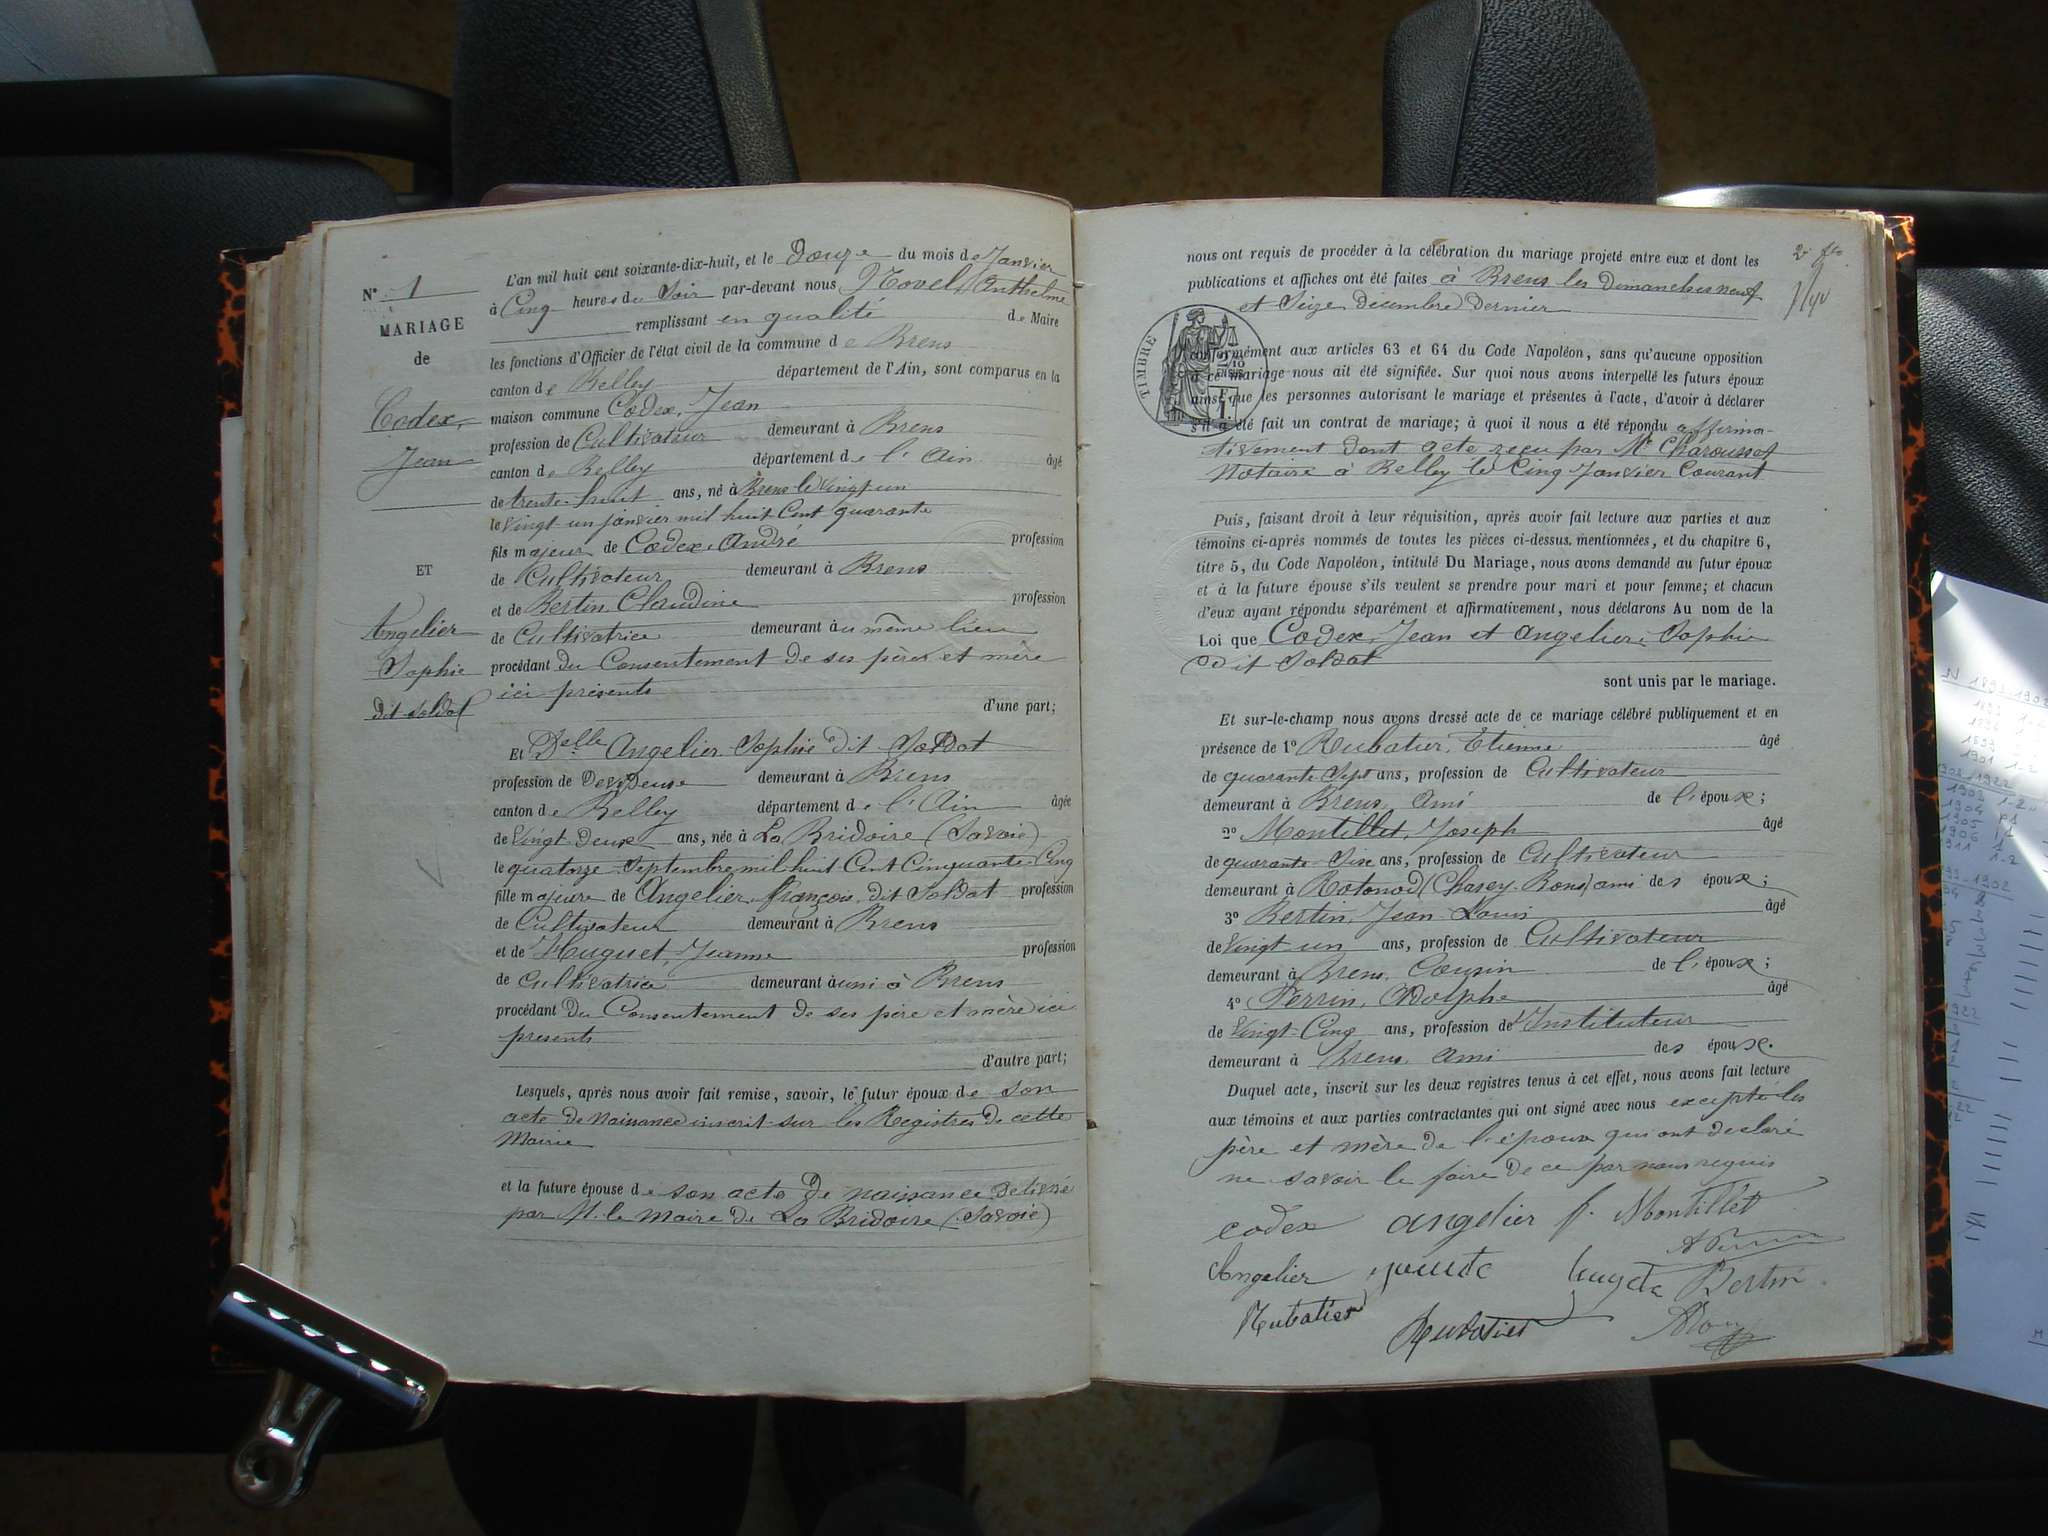 N° 1
MARIAGE
de
Codex,
Jean
ET
Angelier
Sophie
dit Soldat
L'an mil huit cent soixante-dix-huit, et le Douze du mois de Janvier
à Cinq heures du Soir par-devant nous Novel, Anthelme
remplissant en qualité de Maire
les fonctions d'Officier de l'état civil de la commune de Brens
canton de Belley département de l'Ain, sont comparus en la
maison commune Codex, Jean
profession de Cultivateur demeurant à Brens
canton de Belley département de l'Ain âgé
de trente-huit ans, né à Brens le vingt un
le vingt un janvier mil huit Cent quarante
fils majeur de Codex, André profession
de Cultivateur demeurant à Brens
et de Bertin Claudine profession
de Cultivatrice demeurant au même lieu
procédant du Consentement de ses père et mère
ici présents
d'une part;
Et Delle Angelier Sophie dit Soldat
profession de Dévideuse demeurant à Brens
canton de Belley département de l'Ain âgée
de Vingt Deux ans, née à La Bridoire (Savoie)
le quatorze Septembre mil huit Cent Cinquante-Cinq
fille majeure de Angelier, françois, dit Soldat profession
de Cultivateur demeurant à Brens
et de Huguet, Jeanne profession
de Cultivatrice demeurant aussi à Brens
procédant du Consentement de ses père et mère ici
présents
d'autre part;
Lesquels, après nous avoir fait remise, savoir, le futur époux de son
acte de Naissance inscrit sur les Registres de cette
Mairie
et la future épouse de son acte de naissance délivré
par M. le Maire de La Bridoire (Savoie)
nous ont requis de procéder à la célébration du mariage projeté entre eux et dont les
publications et affiches ont été faites à Brens les Dimanches neuf
et Seize Décembre Dernier
TIMBRE
conformément aux articles 63 et 64 du Code Napoléon, sans qu'aucune opposition
à ce mariage nous ait été signifiée. Sur quoi nous avons interpellé les futurs époux
ainsi que les personnes autorisant le mariage et présentes à l'acte, d'avoir à déclarer
s'il a été fait un contrat de mariage; à quoi il nous a été répondu affirma-
tivement dont acte reçu par Me Charousset
Notaire à Belley le Cinq Janvier Courant
Puis, faisant droit à leur réquisition, après avoir fait lecture aux parties et aux
témoins ci-après nommés de toutes les pièces ci-dessus mentionnées, et du chapitre 6,
titre 5, du Code Napoléon, intitulé Du Mariage, nous avons demandé au futur époux
et à la future épouse s'ils veulent se prendre pour mari et pour femme; et chacun
d'eux ayant répondu séparément et affirmativement, nous déclarons Au nom de la
Loi que Codex, Jean et Angelier, Sophie
Dit Soldat
sont unis par le mariage.
Et sur-le-champ nous avons dressé acte de ce mariage célébré publiquement et en
présence de 1° Rubatier, Etienne âgé
de quarante Sept ans, profession de Cultivateur
demeurant à Brens, Ami de l'époux;
2° Montillet, Joseph âgé
de quarante Six ans, profession de Cultivateur
demeurant à Rotonod (Chasey-Bons) ami des époux;
3° Bertin, Jean Louis âgé
de Vingt un ans, profession de Cultivateur
demeurant à Brens, Cousin de l'époux;
4° Perrin, Adolphe âgé
de Vingt-Cinq ans, profession d'Instituteur
demeurant à Brens, Ami des époux.
Duquel acte, inscrit sur les deux registres tenus à cet effet, nous avons fait lecture
aux témoins et aux parties contractantes qui ont signé avec nous excepté les
père et mère de l'époux qui ont déclaré
ne savoir le faire de ce par nous requis
codex angelier f. Montillet
Angelier Bertin
Rubatier